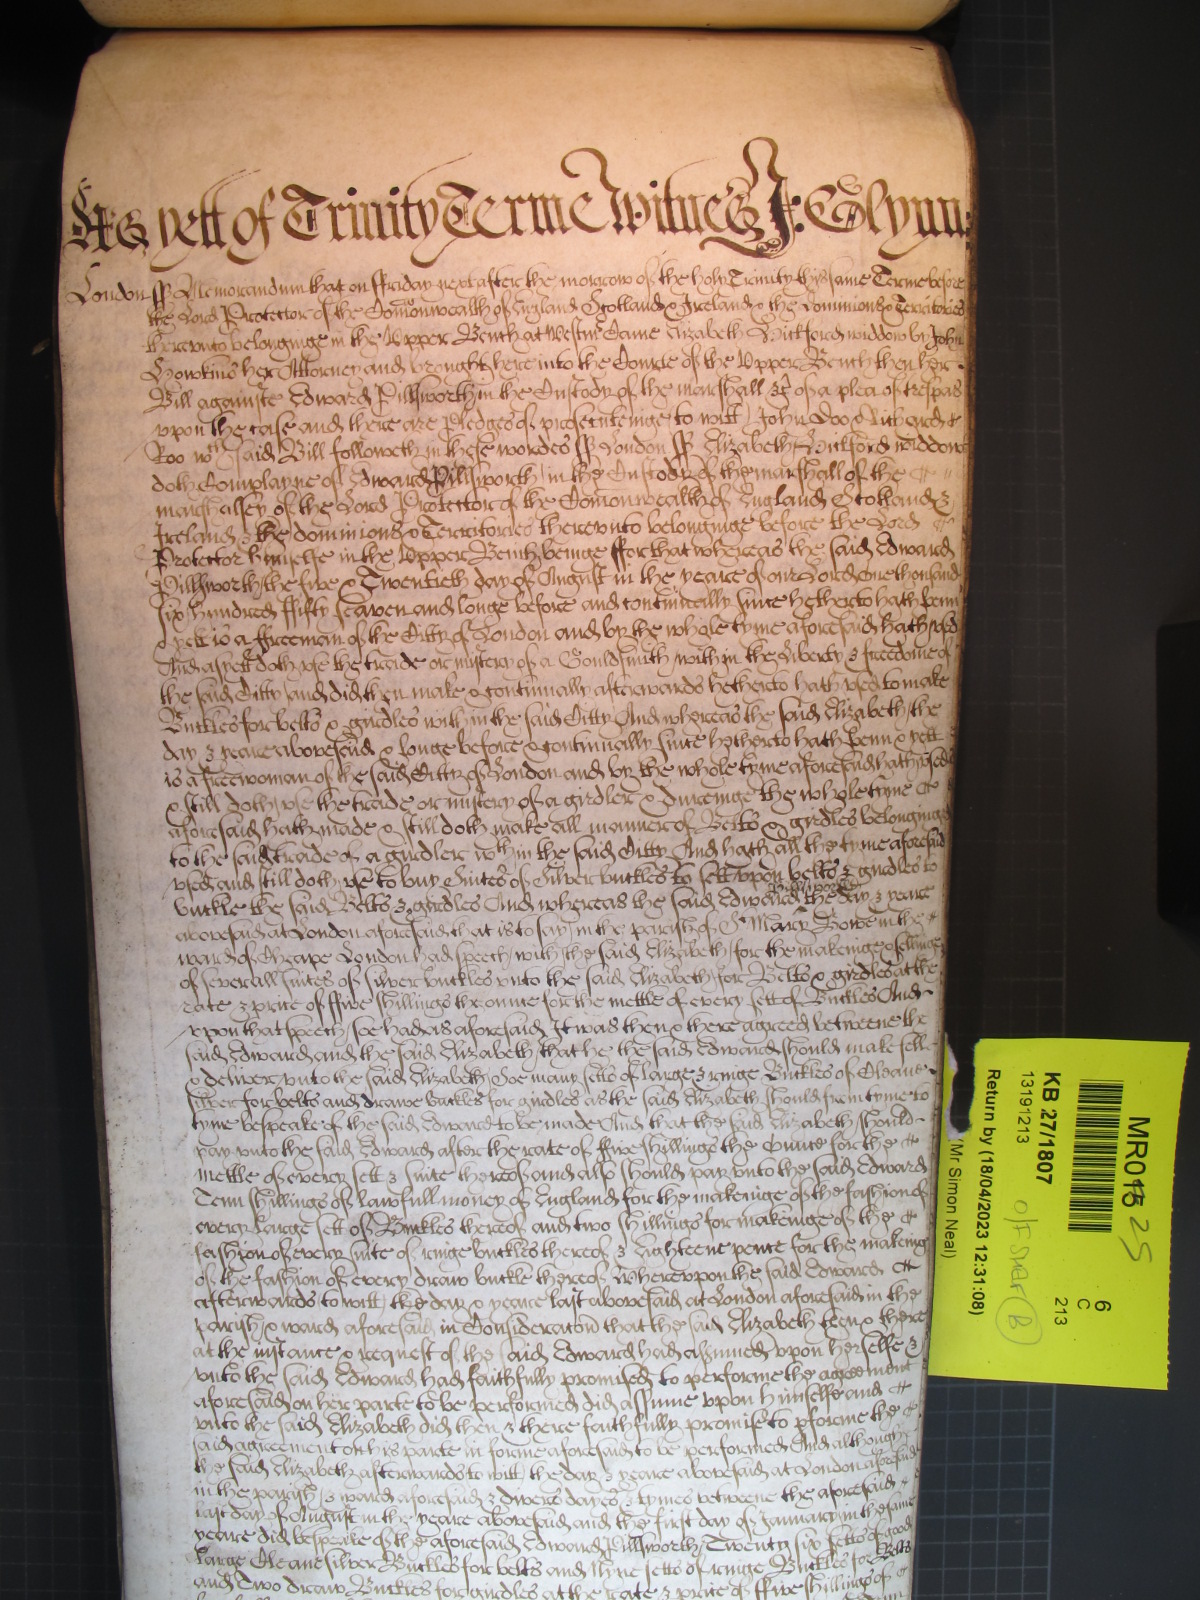 As yett of Trinity Terme Witnes J: Glynn:
London ss Memorandum that on ffriday next after the morrow of the holy Trinity this same Terme before
the Lord Protector of the Comonwealth of England Scotland & Ireland & the Dominions & Territories
therevnto belonginge in the Vpper Bench at Westm Came Elizabeth Pickford widdow by John
Howkins her Attorney and brought here into the Courte of the Vpper Bench then her
Bill againste Edward Pillsworth in the Custody of the marshall &c of a plea of trespas
vpon the case and there are Pledges of prosecuteinge to witt John Doo & Richard
Roo wch said Bill followeth in these wordes ss London ss Elizabeth Pickford widdowe
doth Complayne of Edward Pillsworth in the Custody of the marshall of the
marshalsey of the Lord Protector of the Comonwealth of England Scotland &
Ireland & the dominions & Territories therevnto belonginge before the Lord
Protector himselfe in the Vpper Bench beinge ffor that whereas the said Edward
Pillsworth the five & Twentieth day of August in the yeare of our Lord One thousand
six hundred ffifty seaven and longe before and continually since hetherto hath benn
& yett is a ffreeman of the Citty of London and by the whole tyme aforesaid hath vsed
And as yett doth vse the trade or mistery of a Gouldsmith within the Liberty & freedome of
the said Citty and did then make & continually afterwards hetherto hath vsed to make
Buckles for belts & girdles within the said Citty And whereas the said Elizabeth the
day & yeare abovesaid & longe before & continually since hetherto hath benn & yett
is a freewoman of the said Citty of London and by the whole tyme aforesaid hath vsed
& still doth vse the trade or mistery of a girdler & dureinge the whole tyme
aforesaid hath made & still doth make all manner of Belts & girdles belonginge
to the said trade of a girdler wthin the said Citty And hath all the tyme aforesaid
vsed and still doth vse to buy Suites of Silver buckles to sett vpon belts & girdles to
buckle the said Belts & girdles And whereas the said Edward Pillsworth the day & yeare
abovesaid at London aforesaid that is to say in the parish of St Mary Bowe in the
ward of Cheape London had speech with the said Elizabeth for the makeinge & sellinge
of severall suites of silver buckles vnto the said Elizabeth for Belts & girdles at the
rate & price of ffive shillings the ounce for the mettle of every sett of Buckles And
vpon that speech soe had as aforesaid It was then & there agreed betweene the
said Edward and the said Elizabeth that he the said Edward should make sell
& deliver vnto the said Elizabeth soe many setts of large & ringe Buckles of Cleane
silver for belts and drawe buckles for girdles as the said Elizabeth should from tyme to
tyme bespeake of the said Edward to be made And that the said Elizabeth should
pay vnto the said Edward after the rate of ffive shillings the Ounce for the
mettle of every sett & suite thereof and also should pay vnto the said Edward
Tenn shillings of lawfull money of England for the makeinge of the fashion of
every Large sett of Buckles thereof and two shillings for makeinge of the
fashion of every suite of ringe buckles thereof & Eighteene pence for the makeing
of the fashion of every draw buckle thereof Wherevpon the said Edward
afterwards to witt the day & yeare last abovesaid at London aforesaid in the
parish & ward aforesaid in Consideracon that the said Elizabeth then & there
at the instance & request of the said Edward had assumed vpon herselfe &
vnto the said Edward had faithfully promised to performe the agreement
aforesaid on her parte to be performed did assume vpon himselfe and
vnto the said Elizabeth did then & there faithfully promise to pforme the
said agreement on his parte in forme aforesaid to be performed And although
the said Elizabeth afterwards to witt the day & yeare abovesaid at London aforesaid
in the parish & ward aforesaid & divers dayes & tymes betweene the aforesaid
last day of August in the yeare abovesaid and the first day of January in the same
yeare did bespeake of the aforesaid Edward Pillsworth Twenty six setts of good
Large Cleane silver Buckles for belts and Nyne setts of ringe Buckles for Belts
and Two draw Buckles for girdles at the rate & price of ffive shillings of
MR015 25
6
C
213
KB 27/1807
13191213
O/F Shelf B
Return by (18/04/2023 12:31:08)
(Mr Simon Neal)